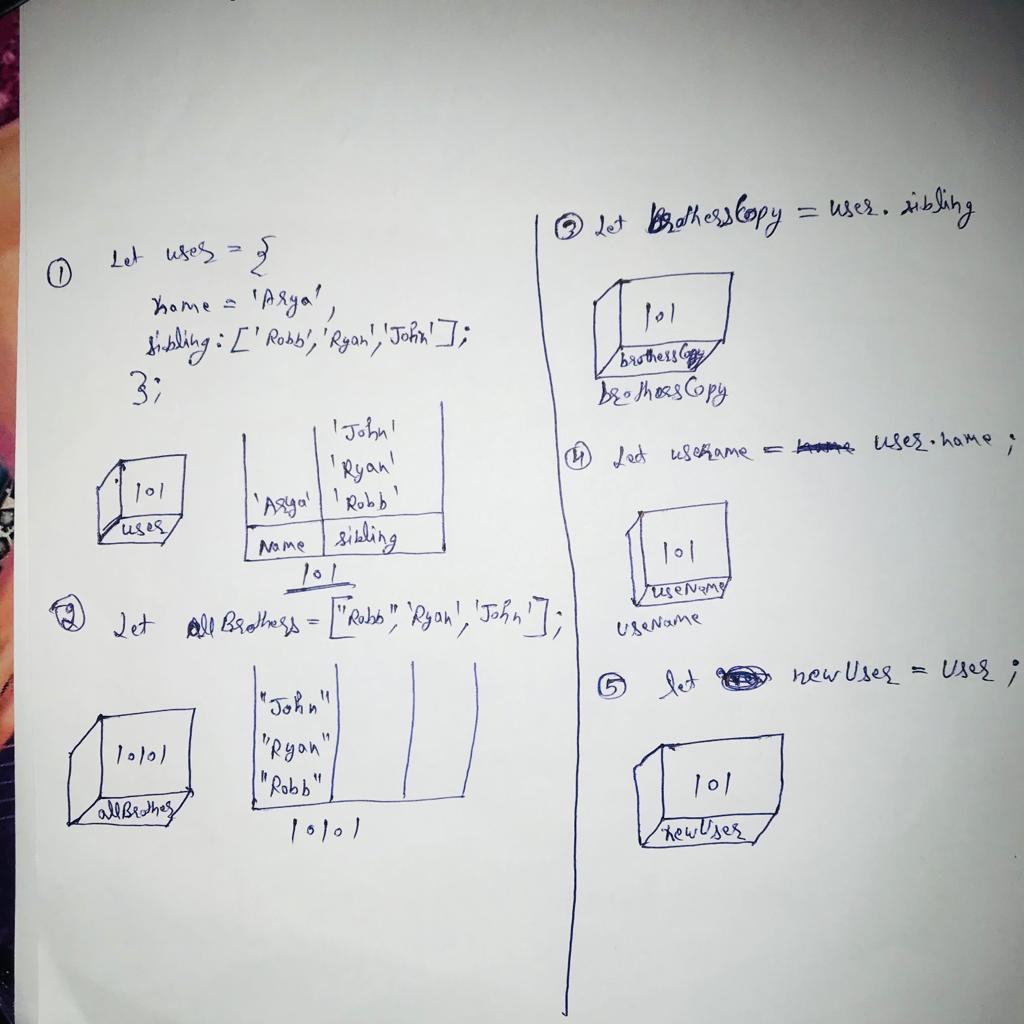 ① Let user = {
name = 'Arya',
sibling: ['Robb', 'Ryan', 'John'];
};
101
user
'John'
'Ryan'
'Arya' 'Robb'
Name sibling
101
② Let allBrothers = ["Robb", 'Ryan', 'John'];
10101
allBrother
"John"
"Ryan"
"Robb"
10101
③ Let BrothersCopy = user. sibling
101
brothersCopy
brothersCopy
④ Let username = name user.name ;
101
useName
useName
⑤ let newUser = User ;
101
newUser